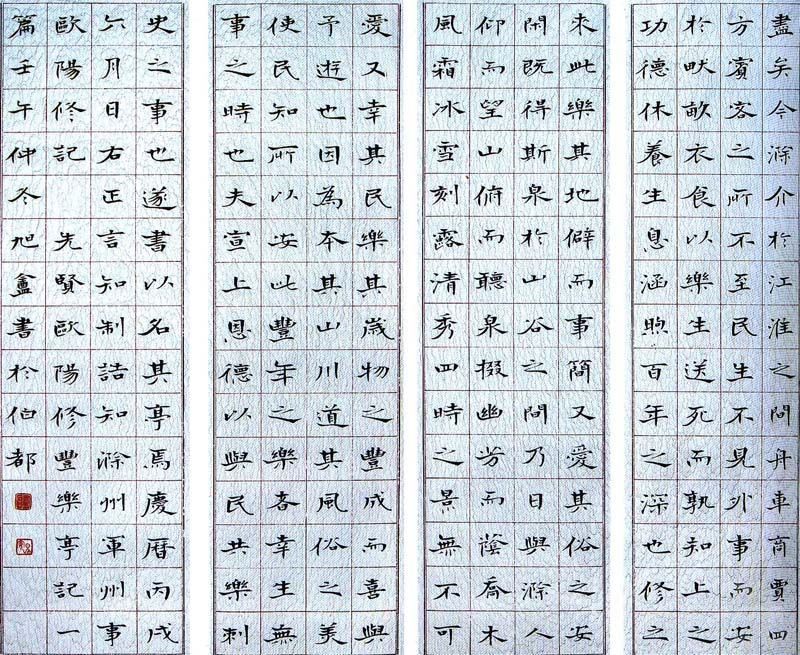 盡矣今滁介於江淮之間舟車商賈四
方賓客之所不至民生不見外事而安
於畎畝衣食以樂生送死而孰知上之
功德休養生息涵煦百年之深也修之
來此樂其地僻而事簡又愛其俗之安
閑既得斯泉於山谷之間乃日與滁人
仰而望山俯而聽泉掇幽芳而蔭喬木
風霜冰雪刻露清秀四時之景無不可
愛又幸其民樂其歲物之豐成而喜與
予遊也因為本其山川道其風俗之美
使民知所以安此豐年之樂者幸生無
事之時也夫宣上恩德以與民共樂刺
史之事也遂書以名其亭焉慶曆丙戌
六月日右正言知制誥知滁州軍州事
歐陽修記 先賢歐陽修豐樂亭記一
篇壬午仲冬旭盦書於伯都